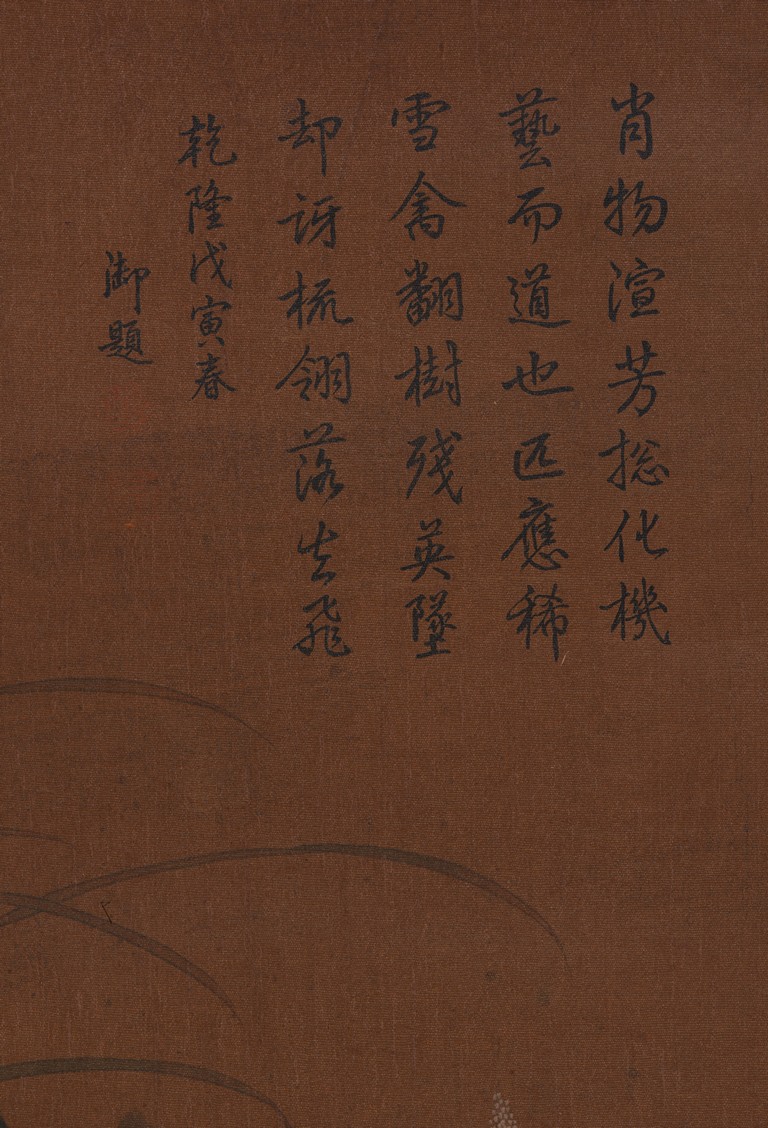 肖物渲芳捴化機
藝而道也匹應稀
雪禽翻樹残英墜
却訝梳翎落去飛
乾隆戊寅春
御題